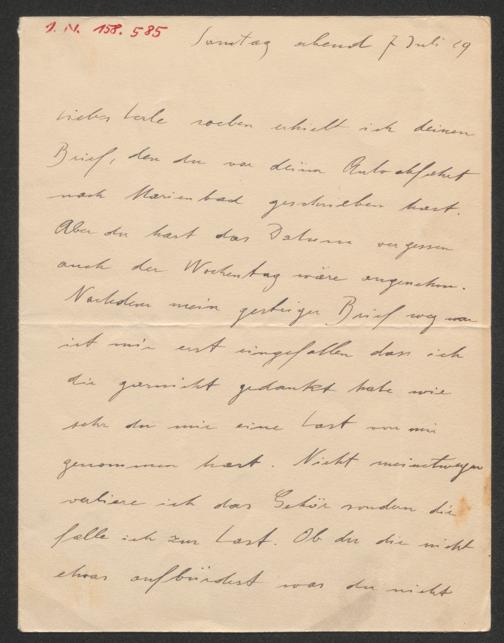 J. N. 158.585
Sonntag abend 7 Juli 29
Liebes Lerle soeben erhielt ich deinen
Brief, den du vor deiner Autoabfahrt
nach Marienbad geschrieben hast.
Aber du hast das Datum vergessen
auch der Wochentag wäre angenehm.
Nachdem mein gestriger Brief weg war
ist mir erst eingefallen dass ich
dir garnicht gedankt habe wie
sehr du mir eine Last von mir
genommen hast. Nicht meinetwegen
verliere ich das Gehör sondern dir
falle ich zur Last. Ob du dir nicht
etwas aufbürdest was du nicht